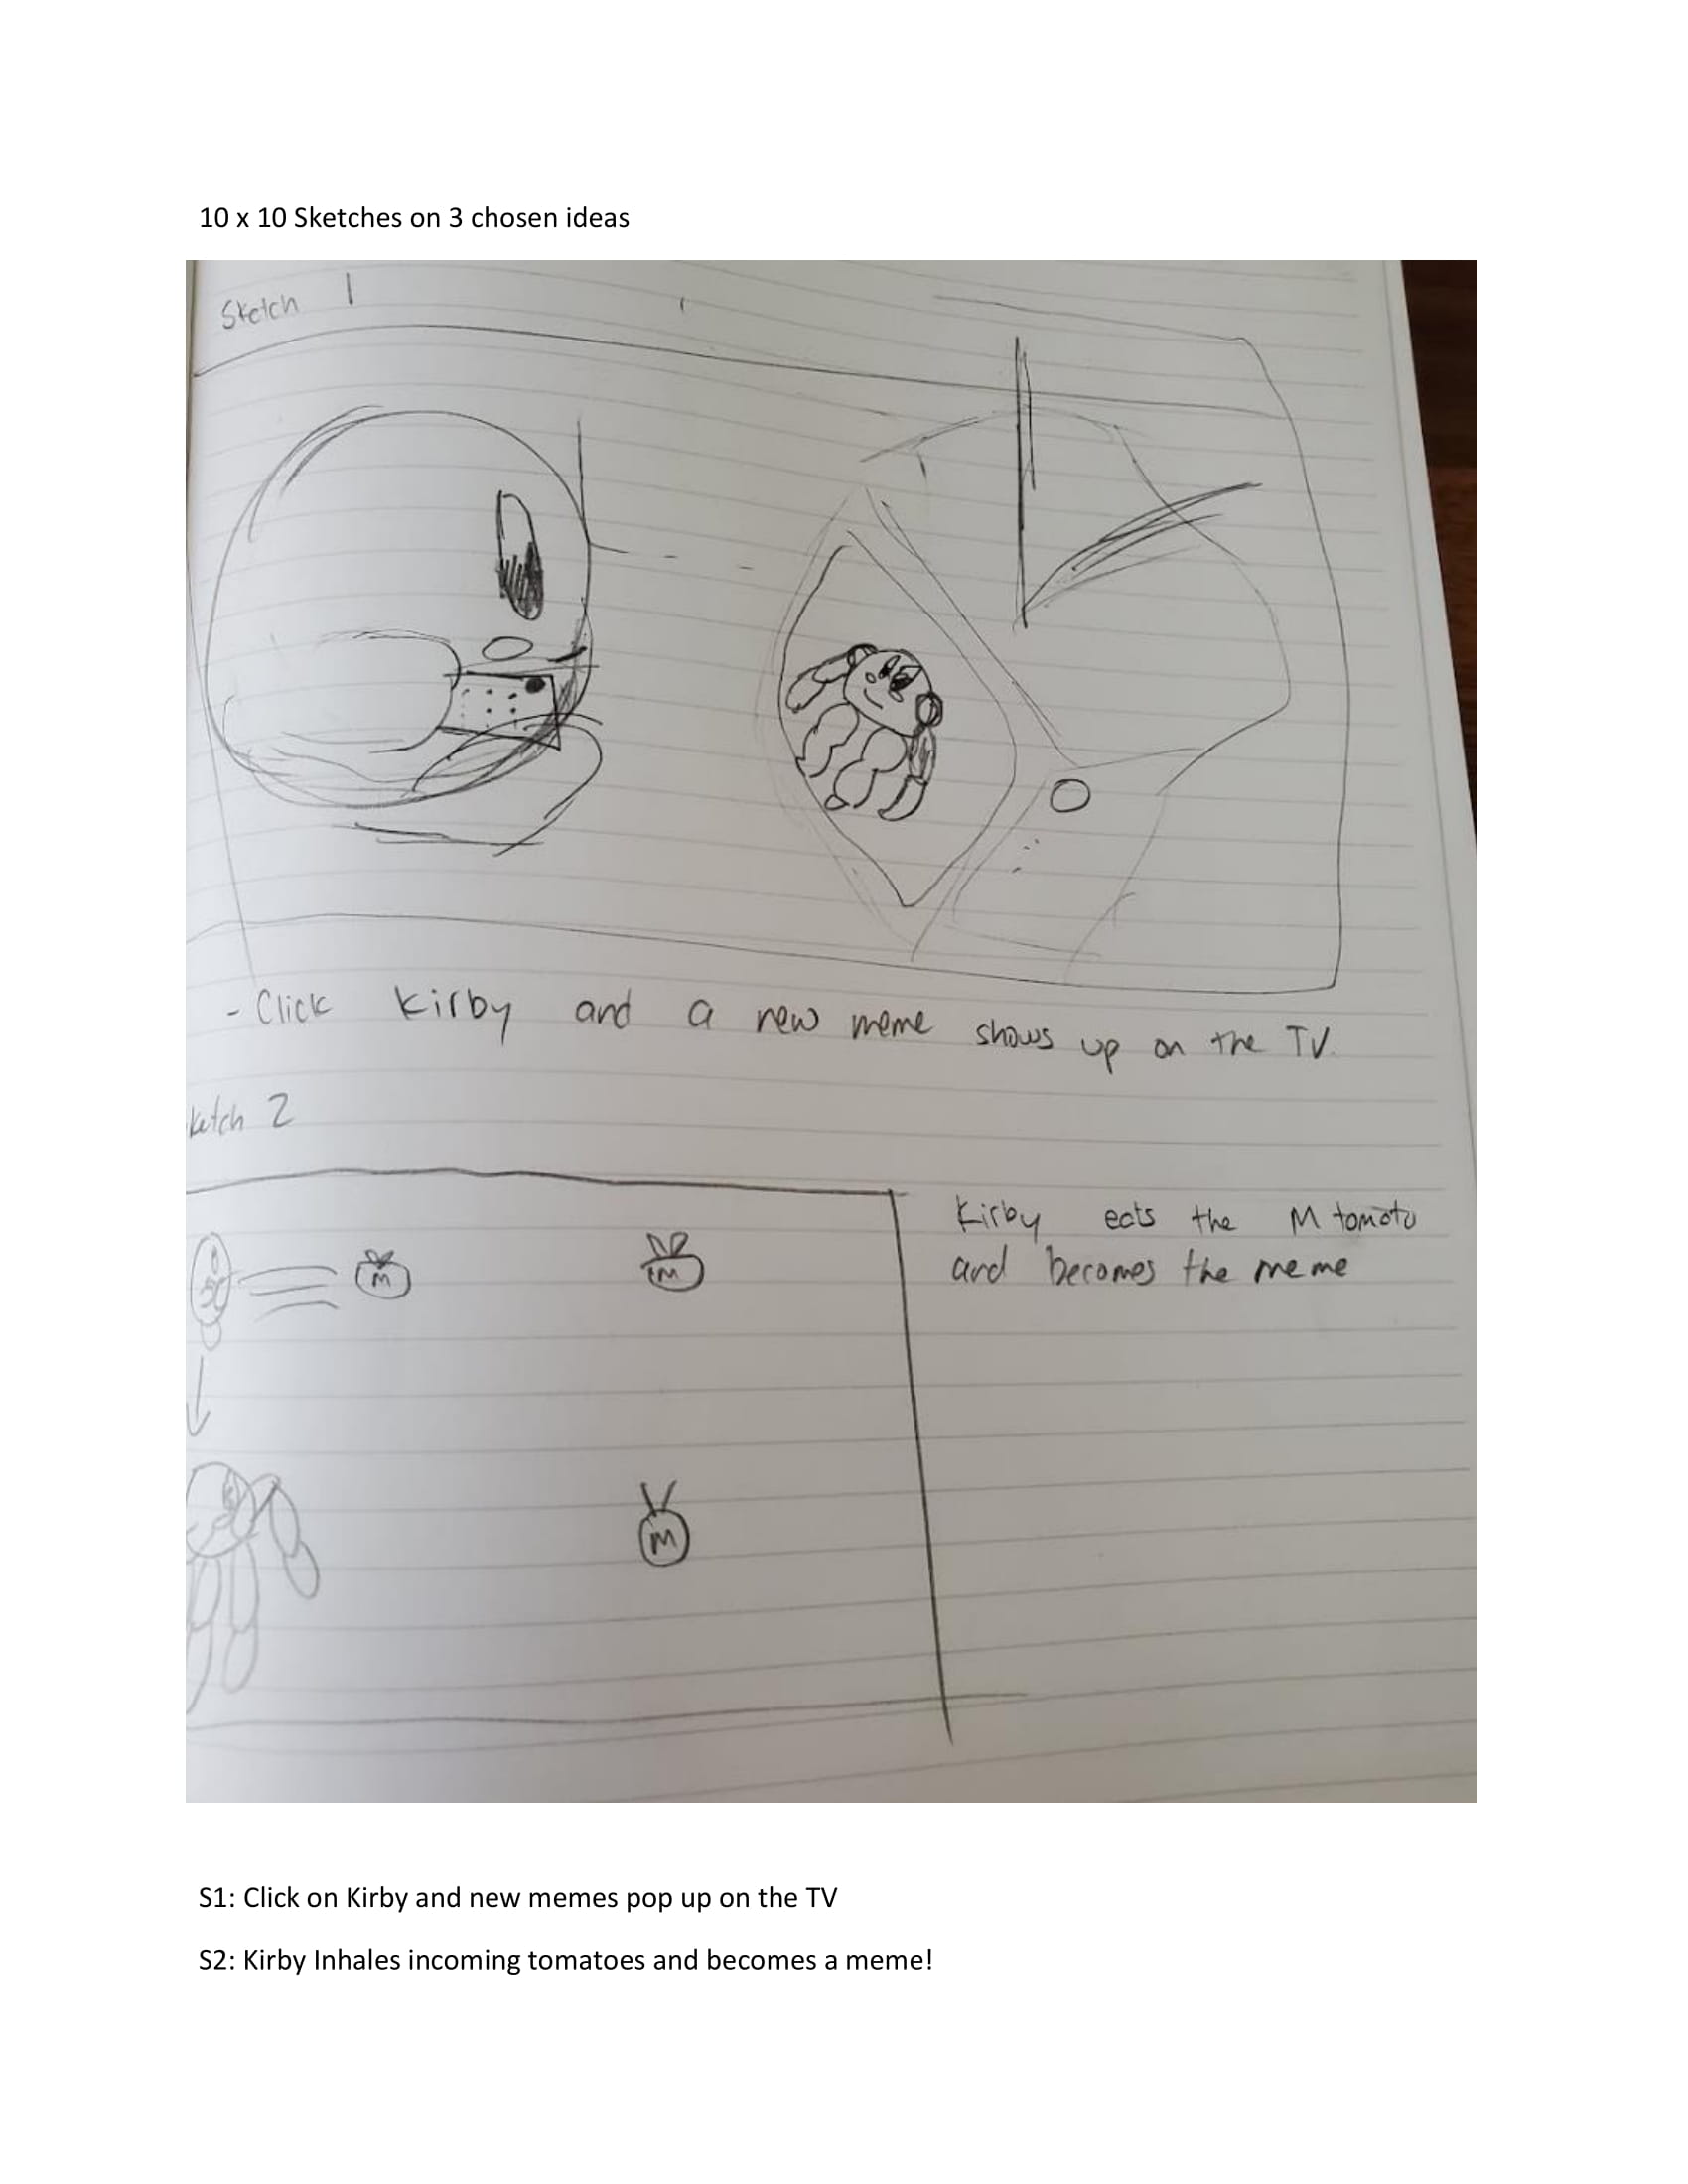 10 x 10 Sketches on 3 chosen ideas
Sketch 1
- Click Kirby and a new meme shows up on the TV.
ketch 2
Kirby eats the M tomato
and becomes the meme
M
M
M
S1: Click on Kirby and new memes pop up on the TV
S2: Kirby Inhales incoming tomatoes and becomes a meme!